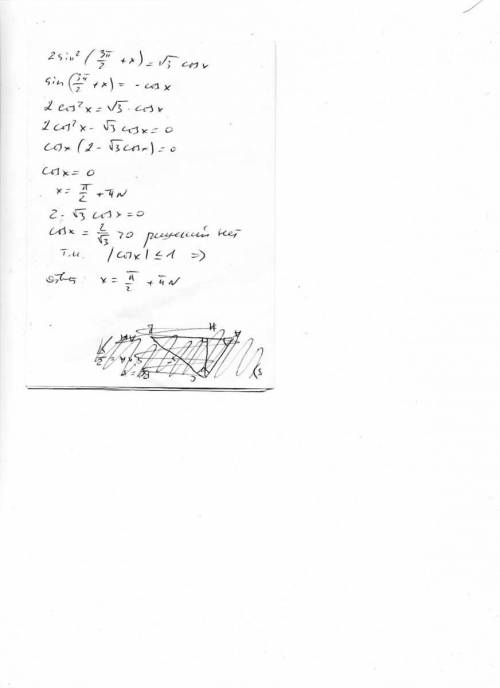 2 sin² (3π/2 + x) = √3 cos x
sin (3π/2 + x) = - cos x
2 cos² x = √3 · cos x
2 cos² x - √3 cos x = 0
cos x (2 - √3 cos x) = 0
cos x = 0
x = π/2 + πN
2 - √3 cos x = 0
cos x = 2/√3 > 0 решений нет
т.к. |cos x| ≤ 1 =>
ответ x = π/2 + πN